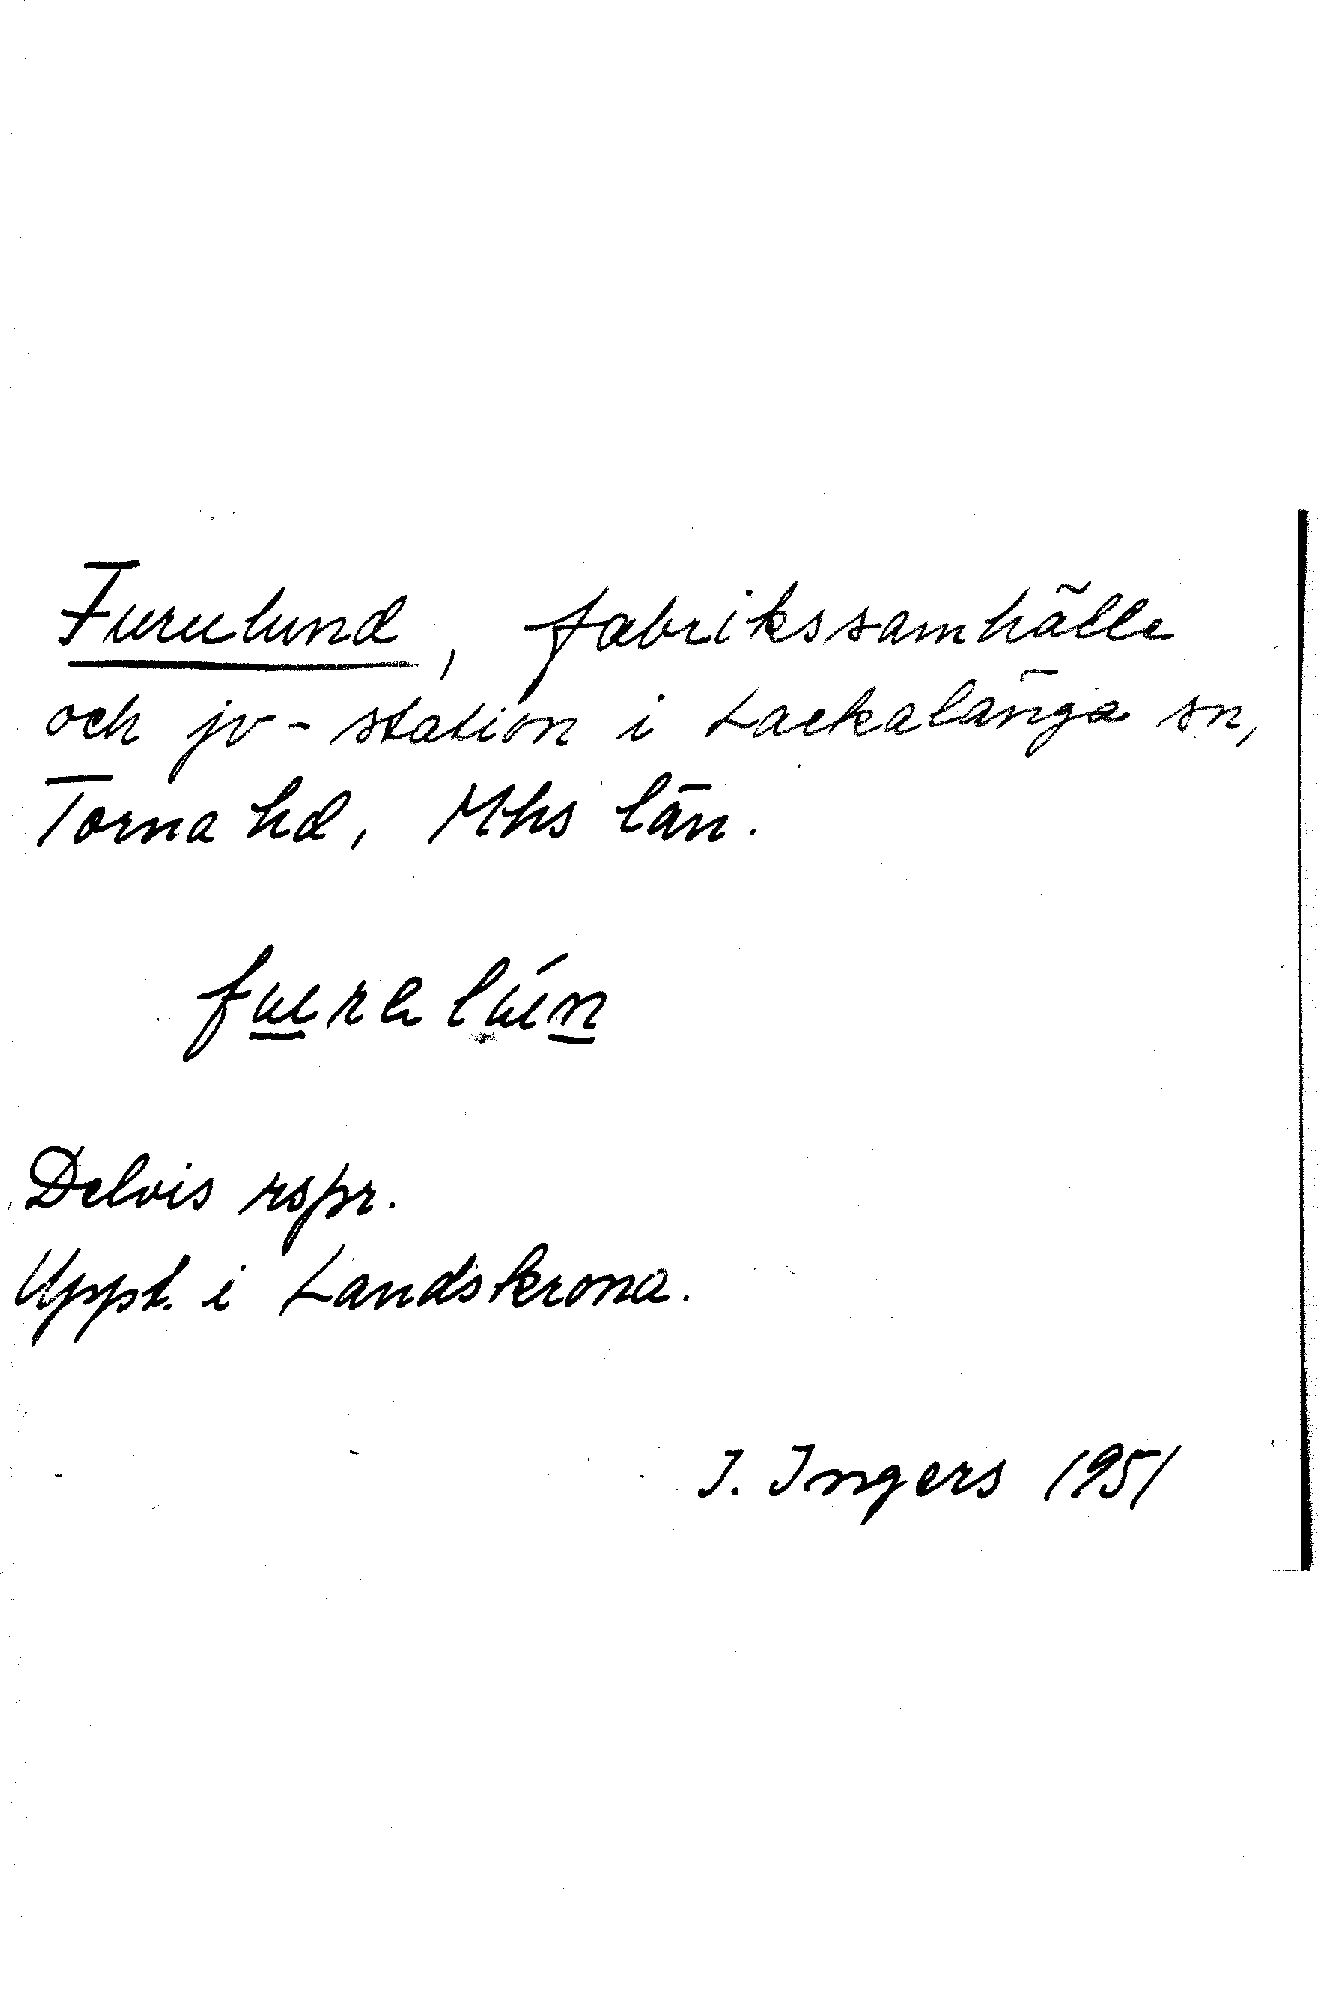 Furulund, fabrikssamhälle
och jv-station i Lackalänga sn,
Torna hd, Mhs län.
Delvis rspr.
Uppt. i Landskrona.
I. Ingers 1951